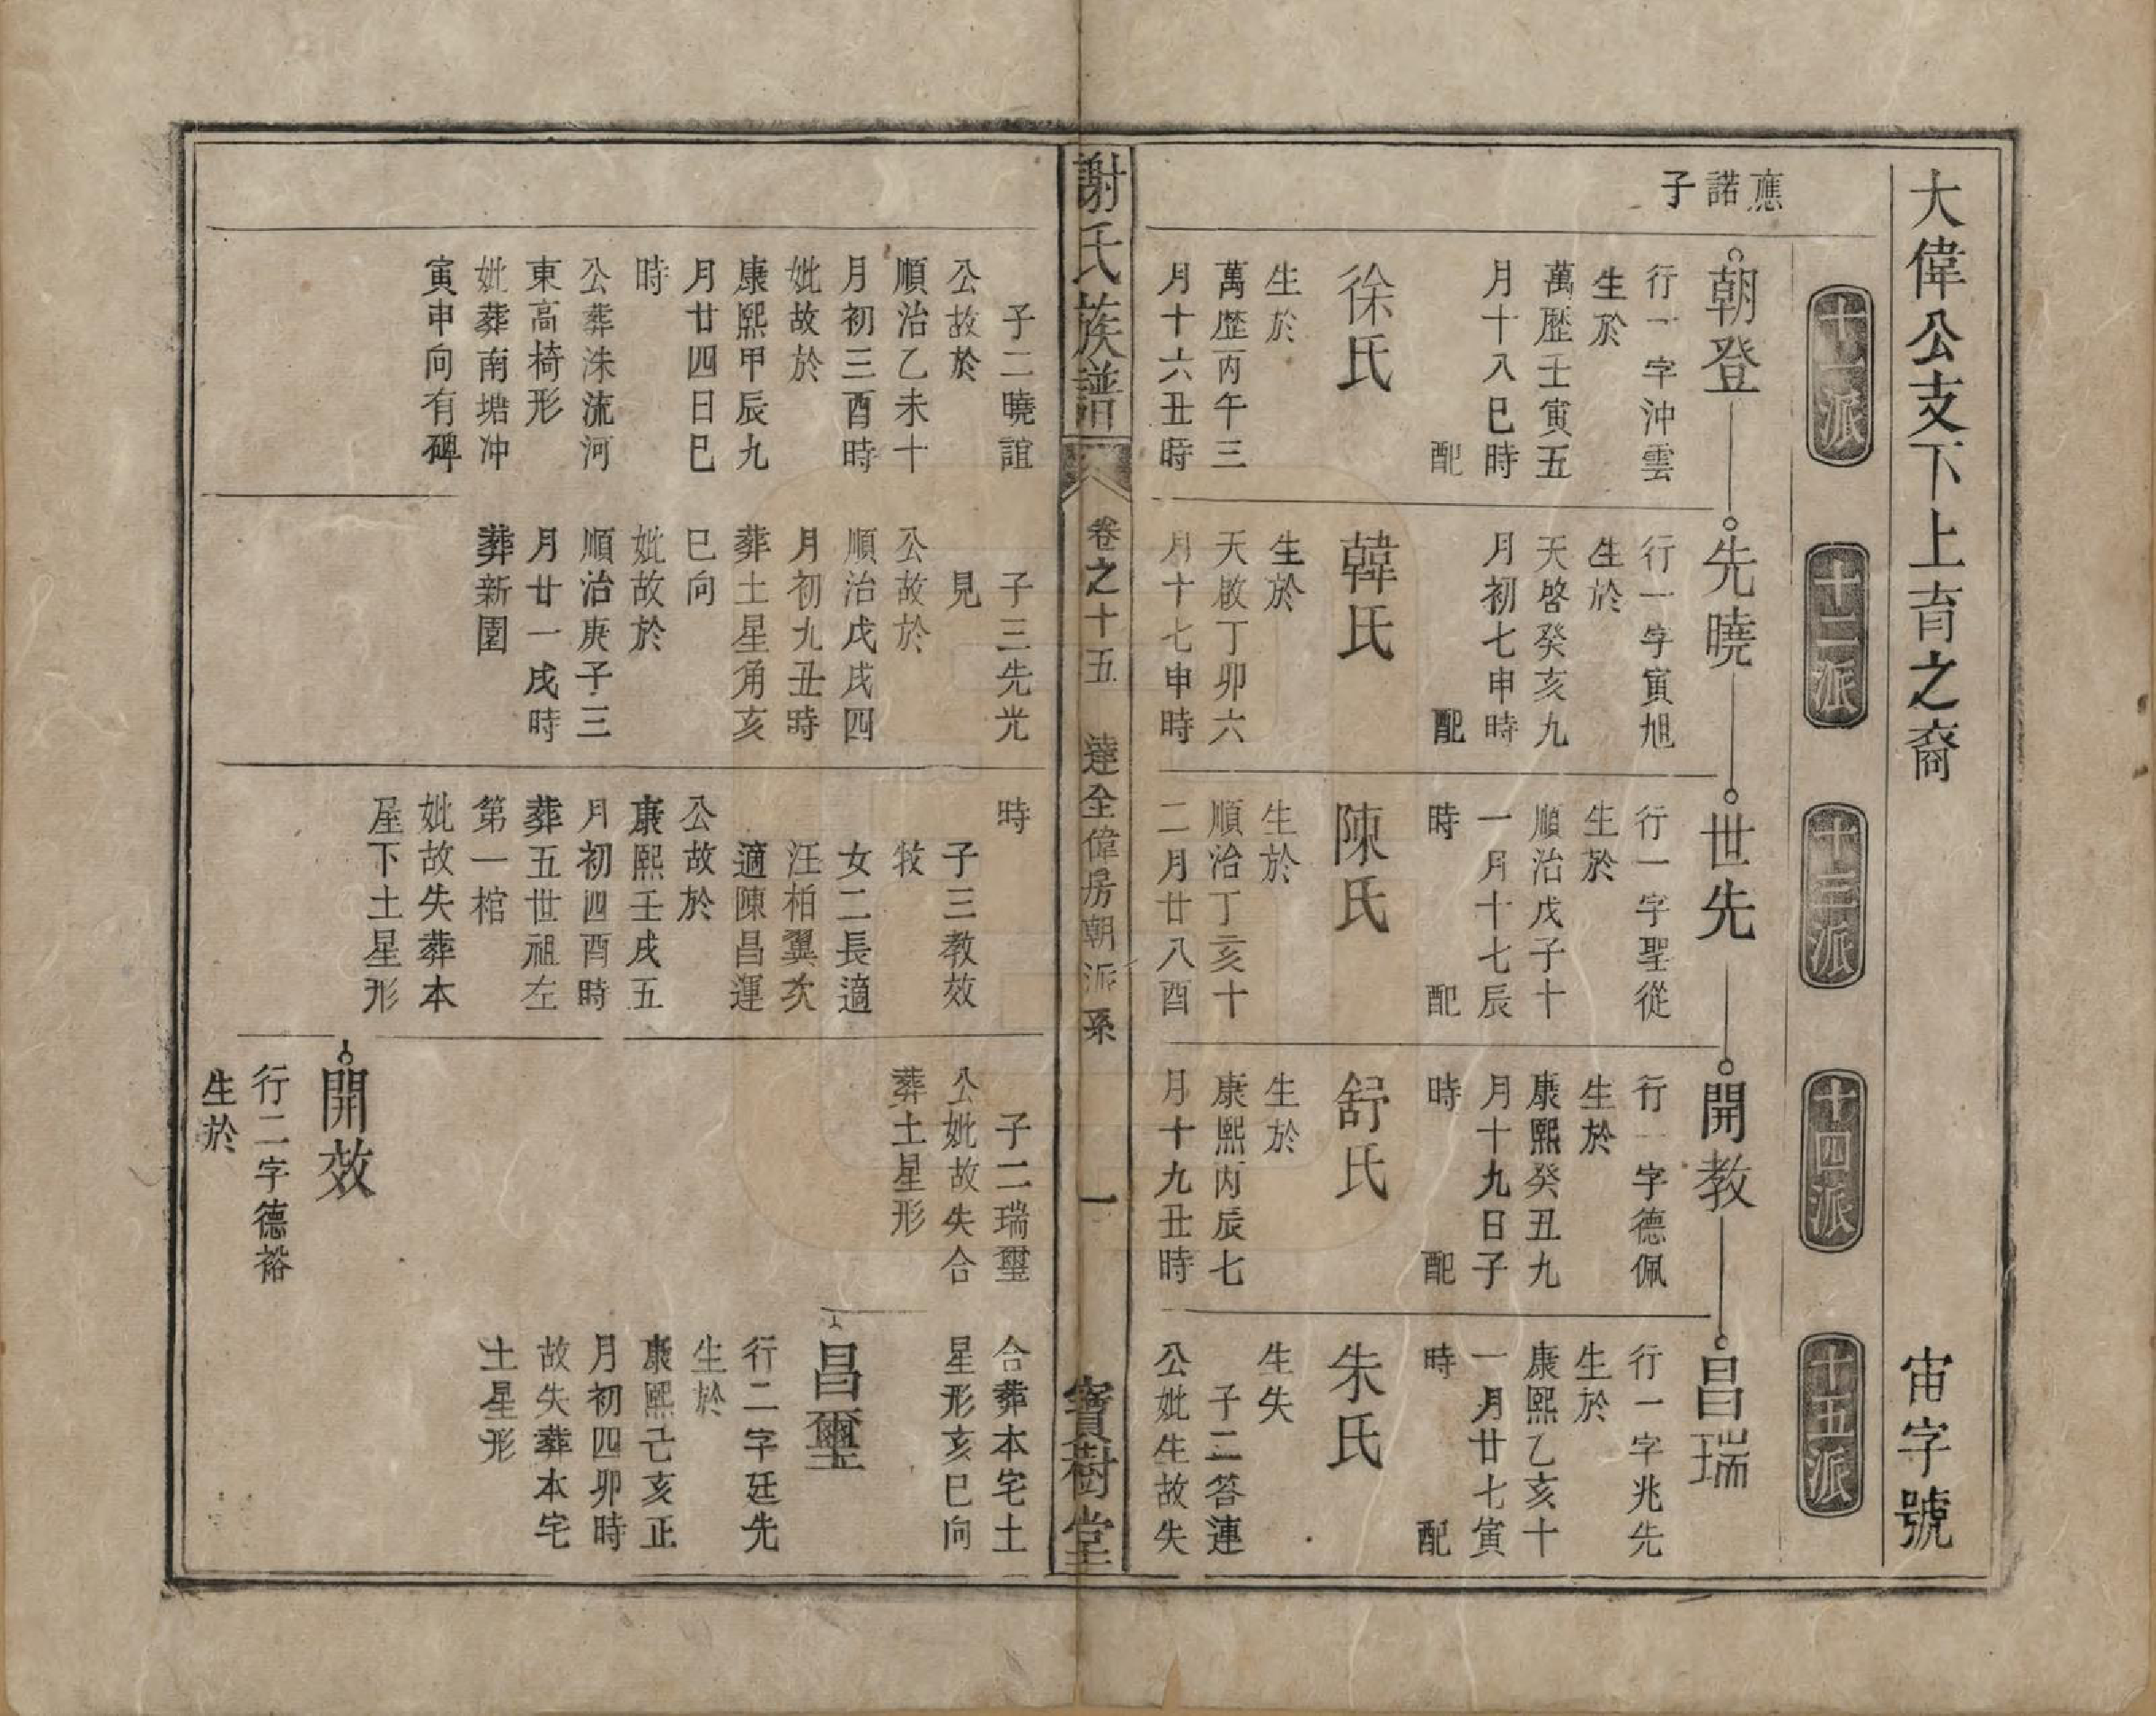 大偉公支下上育之裔 宙字號
十一派
十二派
十三派
十四派
十五派
應
諾
子
朝登
行一字沖雲
生於
萬歷壬寅五
月十八巳時
配
徐氏
生於
萬歷丙午三
月十六丑時
先曉
行一字寅旭
生於
天啓癸亥九
月初七申時
配
韓氏
生於
天啟丁卯六
月十七申時
世先
行一字聖從
生於
順治戊子十
一月十七辰
時 配
陳氏
生於
順治丁亥十
二月廿八酉
開教
行一字德佩
生於
康熙癸丑九
月十九日子
時 配
舒氏
生於
康熙丙辰七
月十九丑時
昌瑞
行一字兆先
生於
康熙乙亥十
一月廿七寅
時 配
朱氏
生失
子二答連
公妣生故失
謝氏族譜 卷之十五 逵全偉房朝派系 一 寳樹堂
子二曉誼
公故於
順治乙未十
月初三酉時
妣故於
康熙甲辰九
月廿四日巳
時
公葬洙流河
東高椅形
妣葬南塘冲
寅申向有碑
子三先光
見
公故於
順治戊戌四
月初九丑時
葬土星角亥
巳向
妣故於
順治庚子三
月廿一戌時
葬新園
時
子三教效
牧
女二長適
汪柏翼次
適陳昌運
公故於
康熙壬戌五
月初四酉時
葬五世祖左
第一棺
妣故失葬本
屋下土星形
子二瑞璽
公妣故失合
葬土星形
開效
行二字德裕
生於
合葬本宅土
星形亥巳向
昌璽
行二字廷先
生於
康熙己亥正
月初四卯時
故失葬本宅
土星形